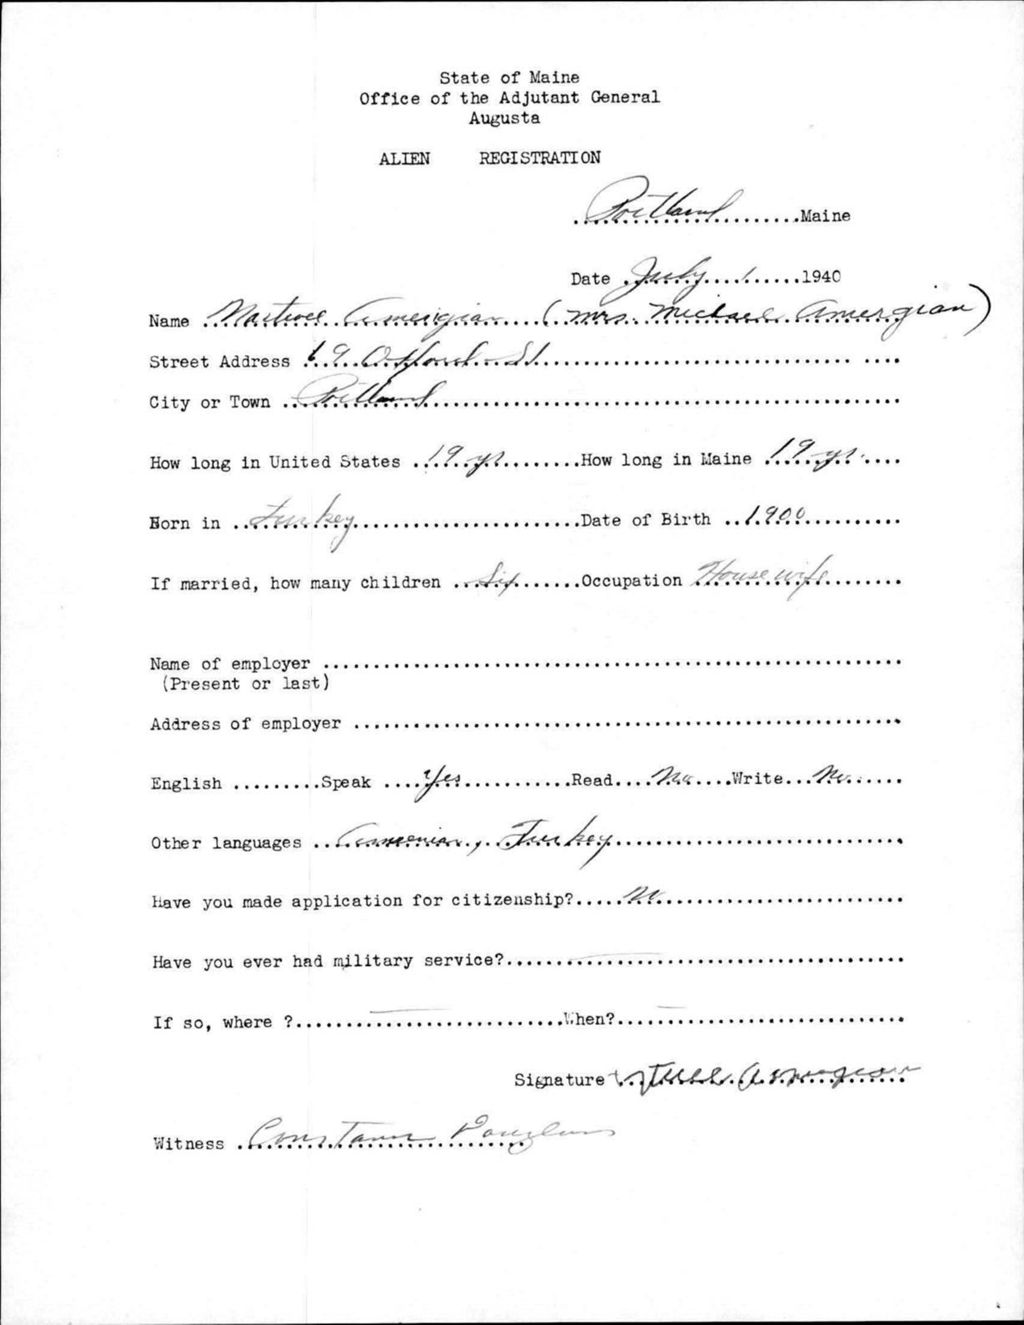 State of Maine
Office of the Adjutant General
Augusta
ALIEN REGISTRATION
Portland Maine
Date July 1 1940
Name Amerigian (Mrs. Michael Amergian)
Street Address 69 Oxford St
City or Town Portland
How long in United States 19 yr How long in Maine 19 yr.
Born in Turkey Date of Birth 1900
If married, how many children Six Occupation Housewife
Name of employer
(Present or last)
Address of employer
English Speak Yes Read No Write No
Other languages Armenian, Turkey
Have you made application for citizenship? No
Have you ever had military service? —
If so, where ? — When? —
Signature
Witness Douglass